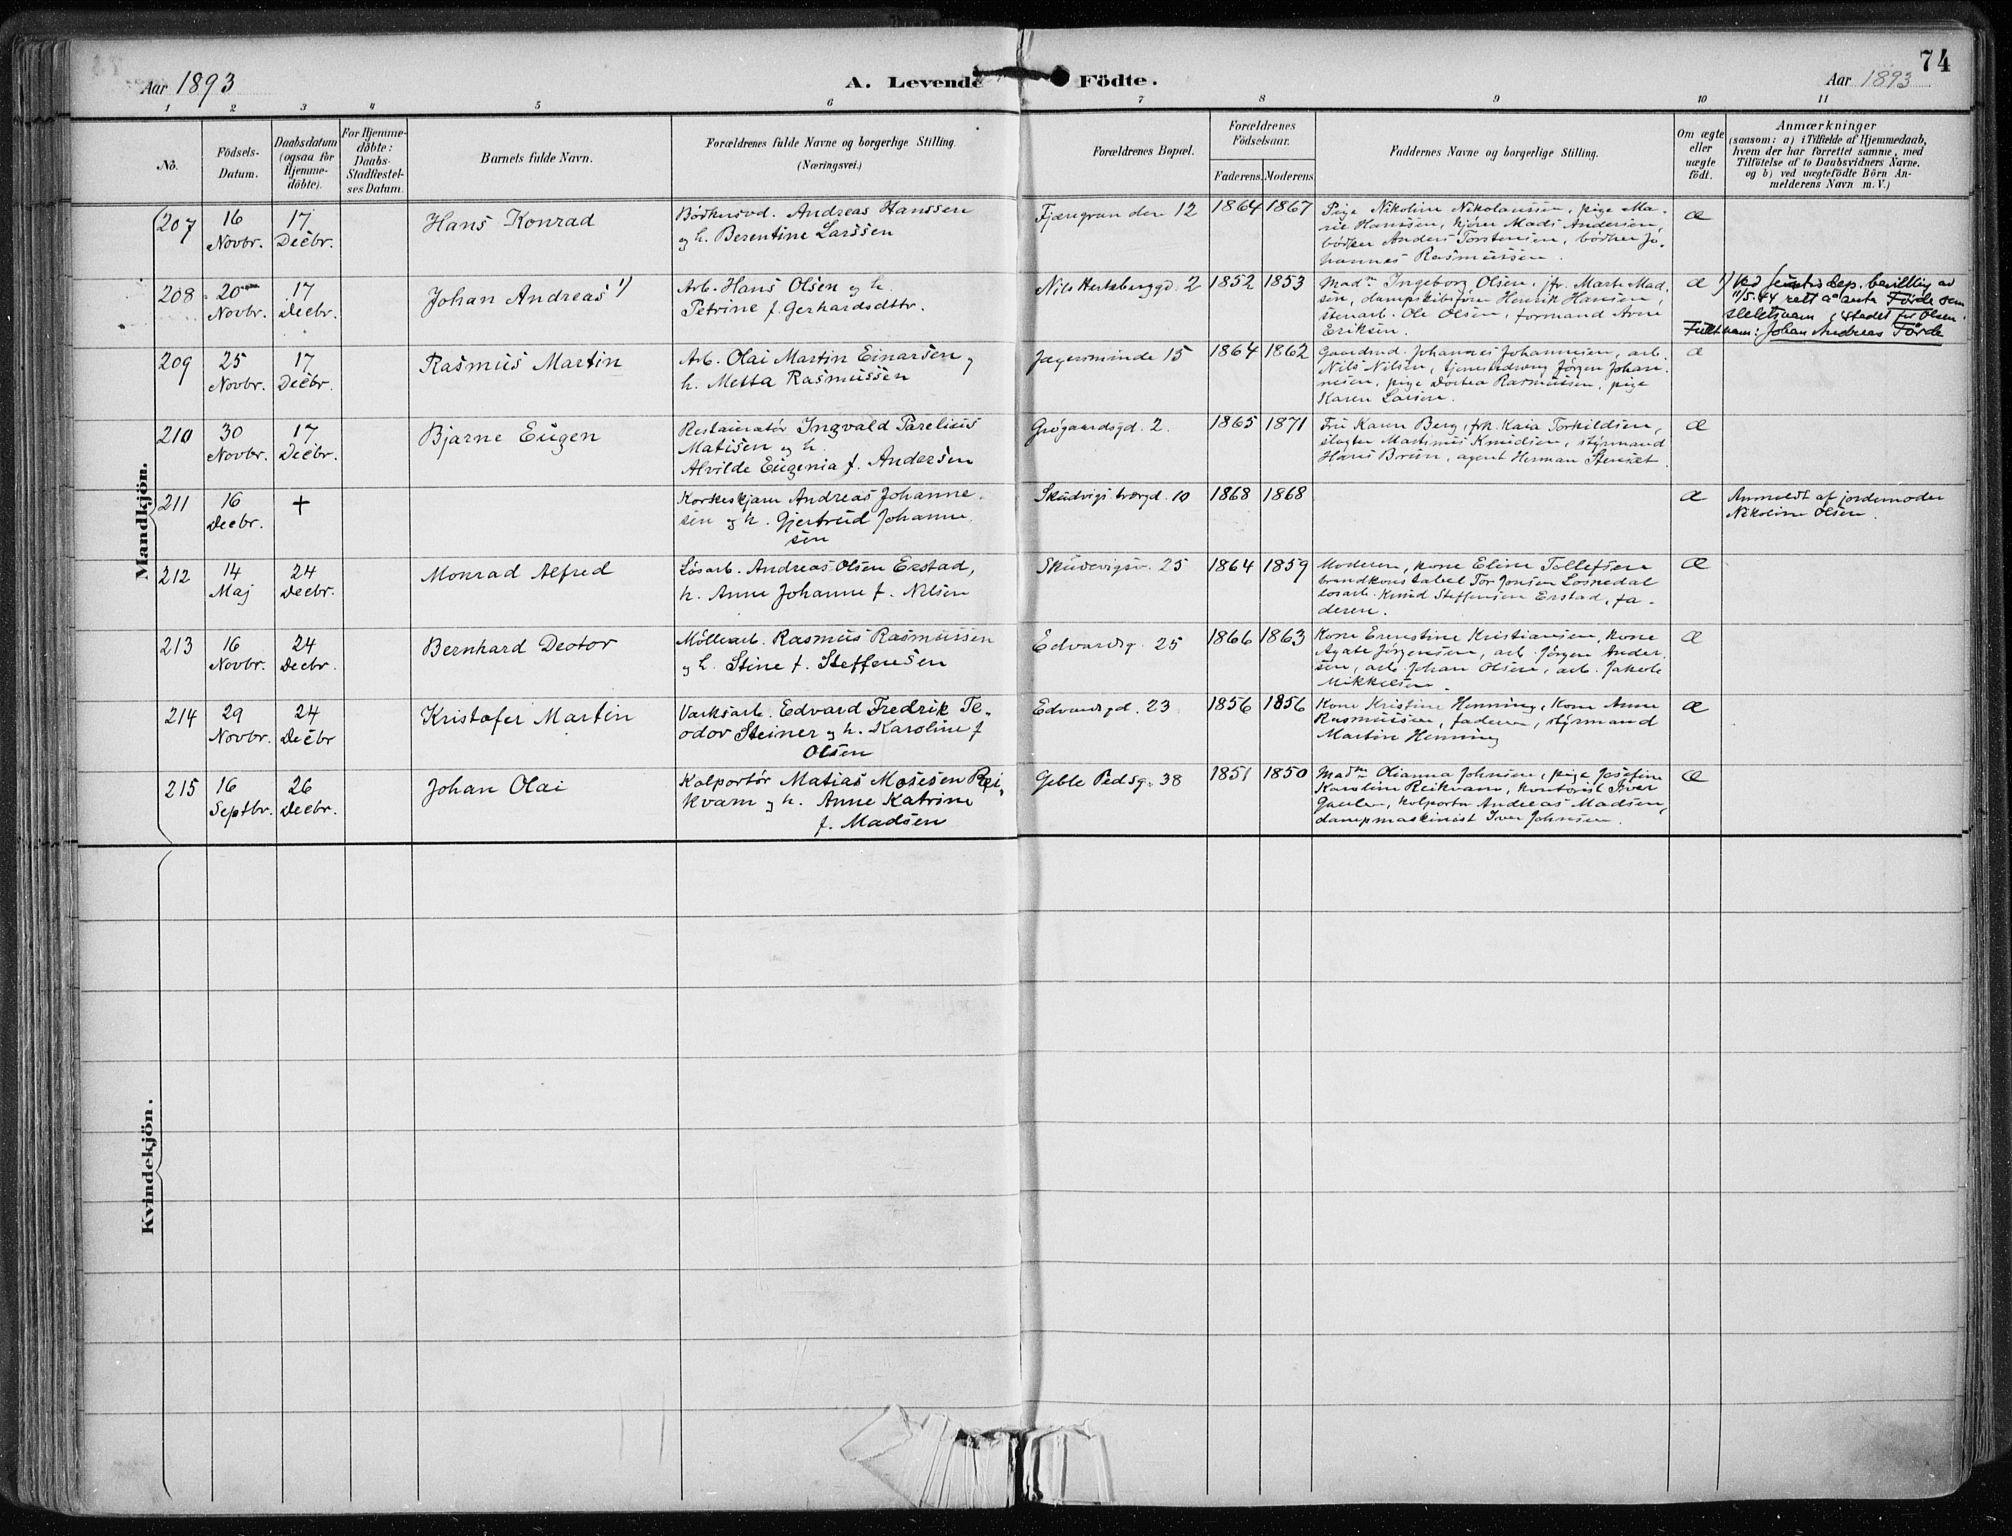 74
Aar 1893
A. Levende Födte.
Aar 1893
1 2 3 4 5 6 7 8 9 10 11
No.
Födsels-
Datum.
Daabsdatum
(ogsaa for
Hjemme-
döbte).
For Hjemme-
döbte:
Daabs-
Stadfæstel-
ses Datum.
Barnets fulde Navn.
Forældrenes fulde Navne og borgerlige Stilling.
(Næringsvei.)
Forældrenes Bopæl.
Forældrenes
Födselsaar.
Faderens. Moderens.
Faddernes Navne og borgerlige Stilling.
Om ægte
eller
uægte
födt.
Anmærkninger
(saasom: a) i Tilfælde af Hjemmedaab,
hvem der har forrettet samme, med
Tilföielse af to Daabsvidners Navne.
og b) ved uægtefödte Börn An-
melderens Navn m. V.)
Mandkjön.
207
16
Novbr.
17
Decbr.
Hans Konrad
Bødkersvd. Andreas Hanssen
og h. Berentine Larssen
Fjæregranden 12
1864
1867
Pige Nikoline Nikolaussen, pige Ma-
rie Hanssen, kjører Mads Andersen,
bødker Anders Torstensen, bødker Jo-
hannes Rasmussen.
æ
208
20
Novbr.
17
Decbr.
Johan Andreas 1)
Arb. Hans Olsen og h.
Petrine f. Gerhardsdttr.
Nils Hertzberggd. 2
1852
1853
Madm Ingeborg Olsen, jfr. Marte Mad-
sen, dampskibsfører Henrik Hansen,
stenarb. Ole Olsen, formand Arne
Eriksen.
æ
1) Ved Justisdep. bevilling av
11/5.44 rett a anta Förde som
slektsnavn i stedet for Olsen.
Fullt navn: Johan Andreas Förde
209
25
Novbr.
17
Decbr.
Rasmus Martin
Arb. Olai Martin Einarsen og
h. Metta Rasmussen
Jægersminde 15
1864
1862
Gaardmd. Johannes Johannesen, arb.
Nils Nilsen, tjenestedreng Jørgen Johan-
nesen, pige Dortea Rasmussen, pige
Karen Larsen.
æ
210
30
Novbr.
17
Decbr.
Bjarne Eugen
Restauratør Ingvald Parelius
Matisen og h.
Alvilde Eugenia f. Andersen
Grøgaardsgd. 2.
1865
1871
Fru Karen Berg, frk. Kaia Torkildsen,
slagter Martinus Knudsen, styrmand
Hans Brun, agent Herman Stensæt
æ
211
16
Decbr.
+
Korkeskjærer Andreas Johanne-
sen og h. Gjertrud Johanne-
sen
Skudvigs tværgd. 10
1868
1868
æ
Anmeldt af jordemoder
Nikoline Olsen.
212
14
Maj
24
Decbr.
Monrad Alfred
Løsarb. Andreas Olsen Erstad,
h. Anne Johanne f. Nilsen
Skudevigsv. 25
1864
1859
Moderen, kone Eline Tollefsen
brandkonstabel Tor Jonsen Losnedal
løsarb. Knud Steffensen Erstad, fa-
deren.
æ
213
16
Novbr.
24
Decbr.
Bernhard Deotor
Møllearb. Rasmus Rasmussen
og h. Stine f. Steffensen
Edvardsg. 25
1866
1863
Kone Erenstine Kristiansen, kone
Agate Jørgensen, arb. Jørgen Ander-
sen, arb. Johan Olsen, arb. Jakob
Mikkelsen.
æ
214
29
Novbr.
24
Decbr
Kristofer Martin
Værksarb. Edvard Fredrik Te-
odor Steiner og h. Karoline f
Olsen
Edvardsgd. 23
1856
1856
Kone Kristine Henning, Kone Anne
Rasmussen, faderen, styrmand
Martin Henning
æ
215
16
Septbr.
26
Decbr.
Johan Olai
Kolportør Matias Mosesen Rei-
kvam og h. Anne Katrine
f. Madsen
Geble Pedsg. 38
1851
1850
Madm Olianna Johnsen, pige Josefine
Karoline Reikvam, kontorist Iver
Gaulen, kolportør Andreas Madsen,
dampmaskinist Iver Johnsen.
æ
Kvindekjön.